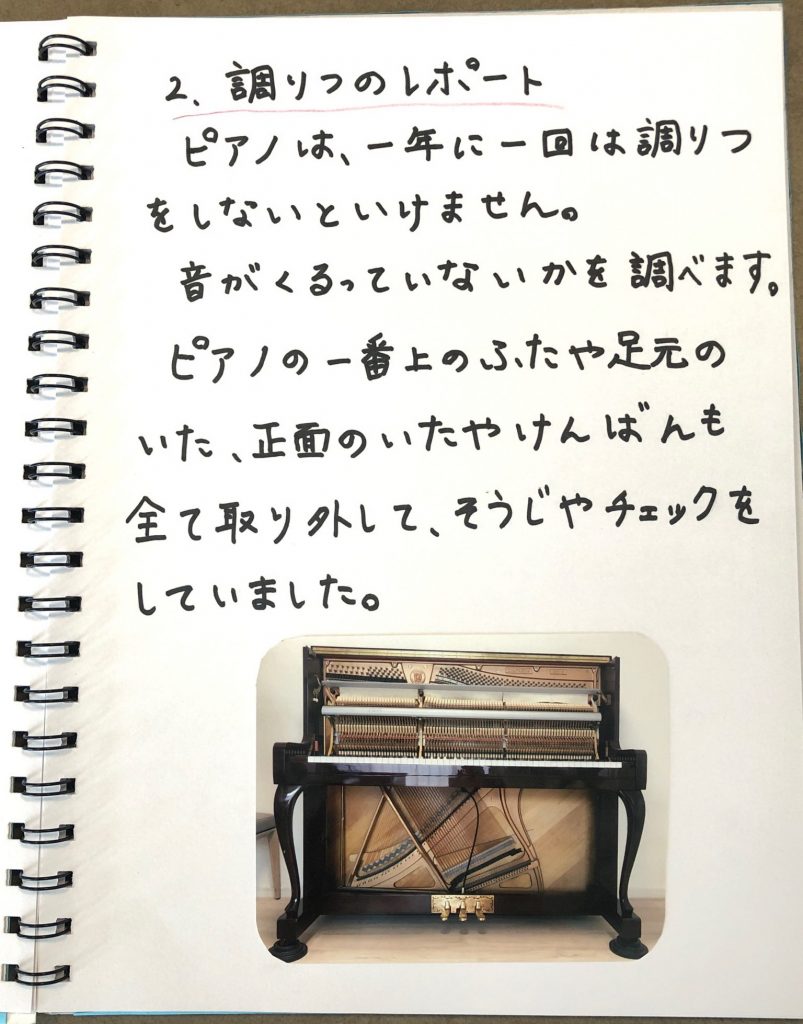 2、調りつのレポート
ピアノは、一年に一回は調りつ
をしないといけません。
音がくるっていないかを調べます。
ピアノの一番上のふたや足元の
いた、正面のいたやけんばんも
全て取り外して、そうじやチェックを
していました。